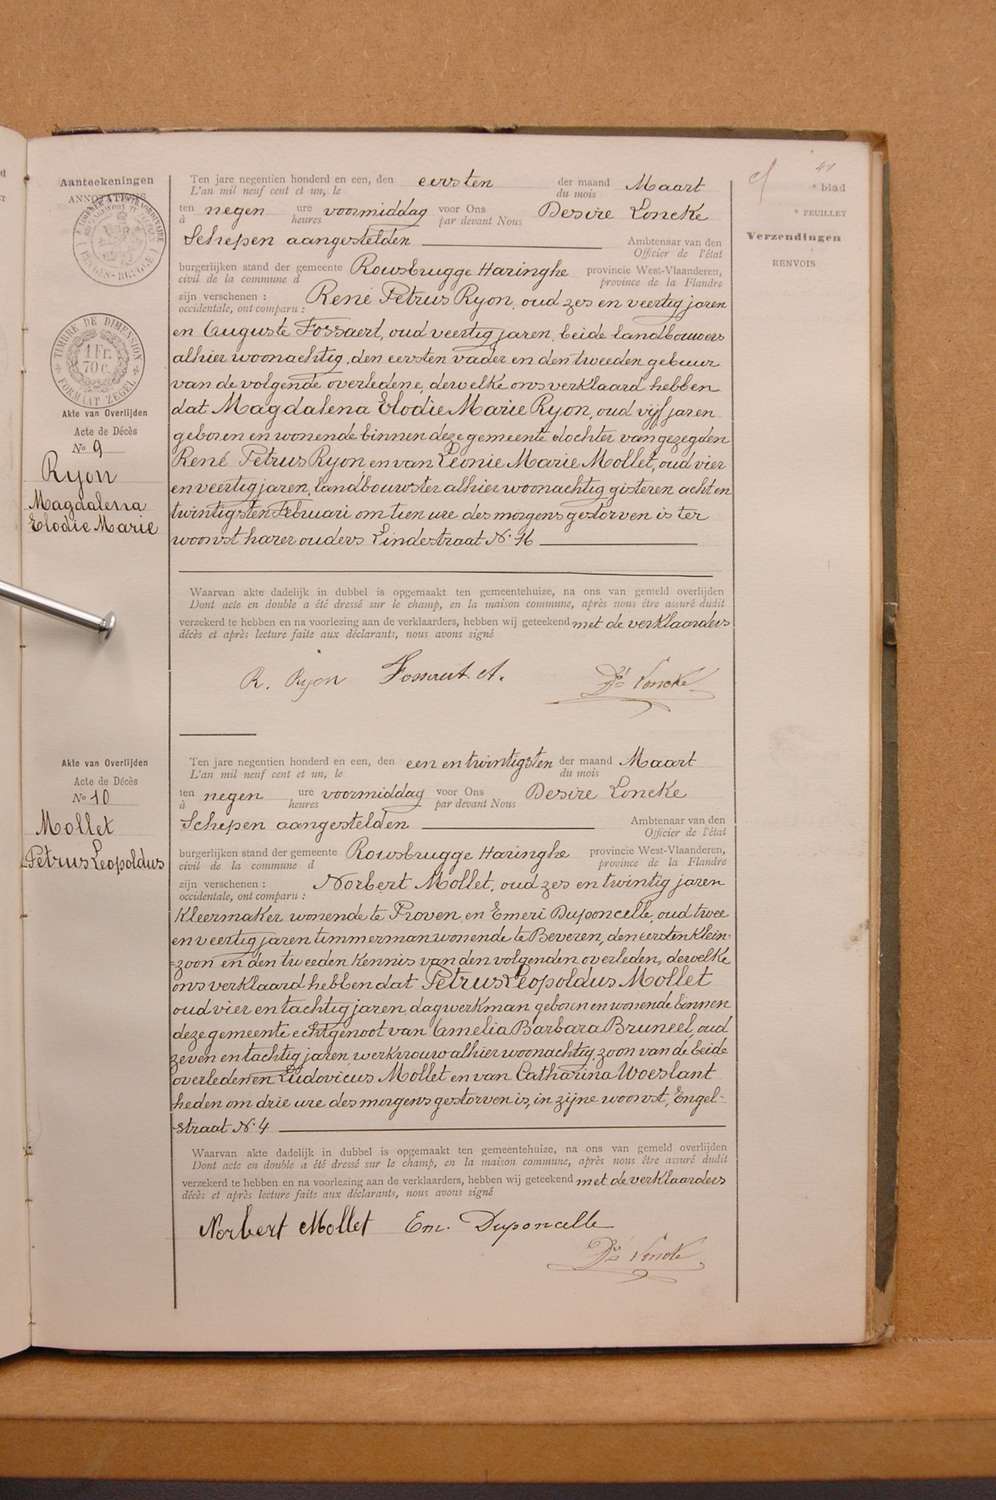 Aanteekeningen
ANNOTATIONS
TIMBRE DE DIMENSION
1 Fr.
70 c.
FORMAAT ZEGEL
Akte van Overlijden
Acte de Décès
No 9
Ryon
Magdalena
Elodie Marie
Ten jare negentien honderd en een, den eersten der maand Maart
L'an mil neuf cent et un, le du mois
ten negen ure voormiddag voor Ons Desire Loncke
à heures par devant Nous
Schepen aangestelden Ambtenaar van den
Officier de l'état
burgerlijken stand der gemeente Rousbrugge Haringhe provincie West-Vlaanderen,
civil de la commune d province de la Flandre
zijn verschenen : René Petrus Ryon, oud zes en veertig jaren
occidentale, ont comparu :
en Auguste Fossaert, oud veertig jaren, beide landbouwers
alhier woonachtig, den eersten vader en den tweeden gebuur
van de volgende overledene, dewelke ons verklaard hebben
dat Magdalena Elodie Marie Ryon, oud vijf jaren
geboren en wonende binnen deze gemeente dochter van gezegden
René Petrus Ryon en van Leonie Marie Mollet, oud vier
en veertig jaren, landbouwster alhier woonachtig gisteren acht en
twintigsten Februari om tien ure des morgens gestorven is ter
woonst harer ouders Lindestraat No 16
Waarvan akte dadelijk in dubbel is opgemaakt ten gemeentehuize, na ons van gemeld overlijden
Dont acte en double a été dressé sur le champ, en la maison commune, après nous être assuré dudit
verzekerd te hebben en na voorlezing aan de verklaarders, hebben wij geteekend met de verklaarders
décès et après lecture faite aux déclarants, nous avons signé
R. Ryon Fossaert A. Dé Loncke
Akte van Overlijden
Acte de Décès
No 10
Mollet
Petrus Leopoldus
Ten jare negentien honderd en een, den een en twintigsten der maand Maart
L'an mil neuf cent et un, le du mois
ten negen ure voormiddag voor Ons Desire Loncke
à heures par devant Nous
Schepen aangestelden Ambtenaar van den
Officier de l'état
burgerlijken stand der gemeente Rousbrugge Haringhe provincie West-Vlaanderen,
civil de la commune d province de la Flandre
zijn verschenen : Norbert Mollet, oud zes en twintig jaren
occidentale, ont comparu :
Kleermaker wonende te Proven, en Emeri Duponcelle, oud twee
en veertig jaren timmerman wonende te Beveren, den eersten klein-
-zoon en den tweeden kennis van den volgenden overleden, dewelke
ons verklaard hebben dat Petrus Leopoldus Mollet
oud vier en tachtig jaren dagwerkman geboren en wonende binnen
deze gemeente echtgenoot van Amelia Barbara Bruneel, oud
zeven en tachtig jaren werkvrouw alhier woonachtig, zoon van de beide
overledenen Ludovicus Mollet en van Catharina Woeslant
heden om drie ure des morgens gestorven is, in zijne woonst, Engel-
-straat No 4
Waarvan akte dadelijk in dubbel is opgemaakt ten gemeentehuize, na ons van gemeld overlijden
Dont acte en double a été dressé sur le champ, en la maison commune, après nous être assuré dudit
verzekerd te hebben en na voorlezing aan de verklaarders, hebben wij geteekend met de verklaarders
décès et après lecture faite aux déclarants, nous avons signé
Norbert Mollet Em. Duponcelle
Dé Loncke
41
e blad
e FEUILLET
Verzendingen
RENVOIS